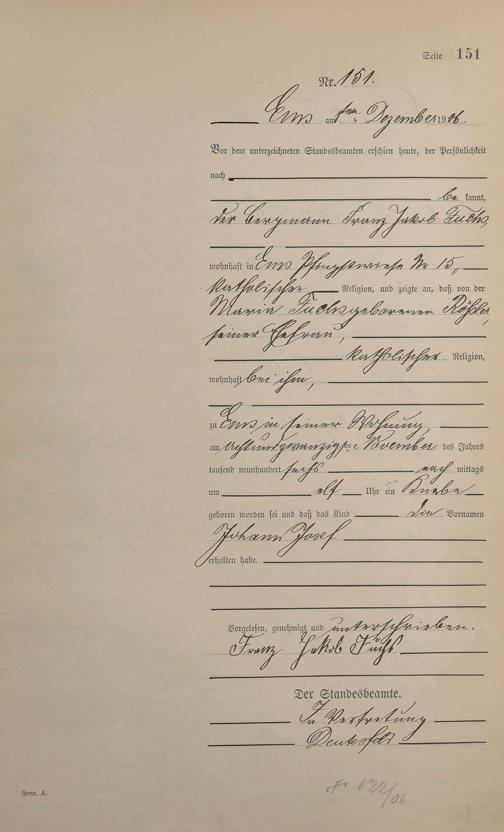 Seite 151
Nr. 151.
Ems am Dezember 1906.
Vor dem unterzeichneten Standesbeamten erschien heute, der Persönlichkeit
nach
be kannt,
der Bergmann Franz Jakob Fuchs,
wohnhaft in Ems Pfingstwiese Nr 15,
katholischer Religion, und zeigte an, daß von der
Maria Fuchs geborenen
seiner Ehefrau,
katholischer Religion,
wohnhaft bei ihm,
zu Ems in seiner Wohnung,
am achtundzwanzigsten November des Jahres
tausend neunhundert sechs nach mittags
um elf Uhr ein Knabe
geboren worden sei und daß das Kind die Vornamen
Johann Josef
erhalten habe.
Vorgelesen, genehmigt und unterschrieben.
Franz Jakob Fuchs
Der Standesbeamte.
In Vertretung
Form. A.